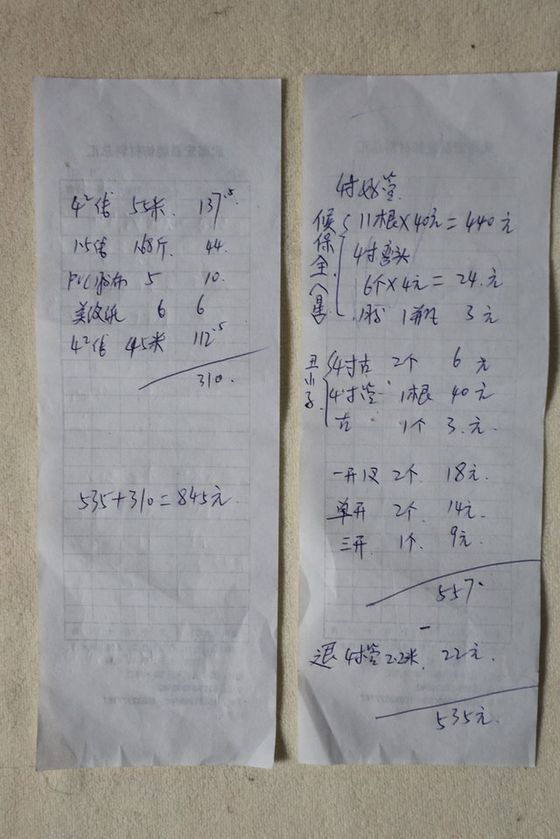 4² 线 55米. 137.5
1.5 线 168斤. 44.
PVC 胶布 5 10.
美纹纸 6 6
4² 线 45米 112.5
310.
535+310=845元.
4寸 管
11根×40元=440元
4寸弯头
6个×4元=24.元
1瓶 3元
4寸古 2个 6元
4寸管 1根 40元
古 1个 3.元.
一开双 2个. 18元.
单开 2个. 14元.
三开. 1个. 9元.
557.
-
退 4寸管 2.2米. 22元.
535元.